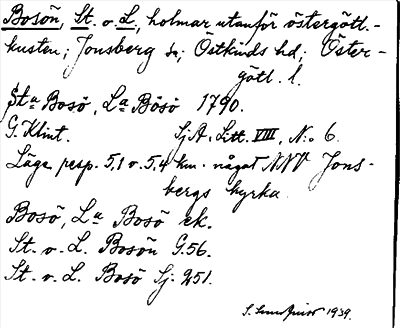 Bosön, St. o. L., holmar utanför östergötl.-
kusten; Jonsberg sn; Östkinds hd; Öster-
götl. l.
Sta Bosö, La Bosö 1790.
G. Klint. Sj.A. Litt. VIII, N:o 6.
Läge resp. 5,1 o. 5,4 km. något NNV Jons-
bergs kyrka.
Bosö, La Bosö ek.
St. o. L. Bosön G.56.
St. o. L. Bosö Sj. 251.
1939.